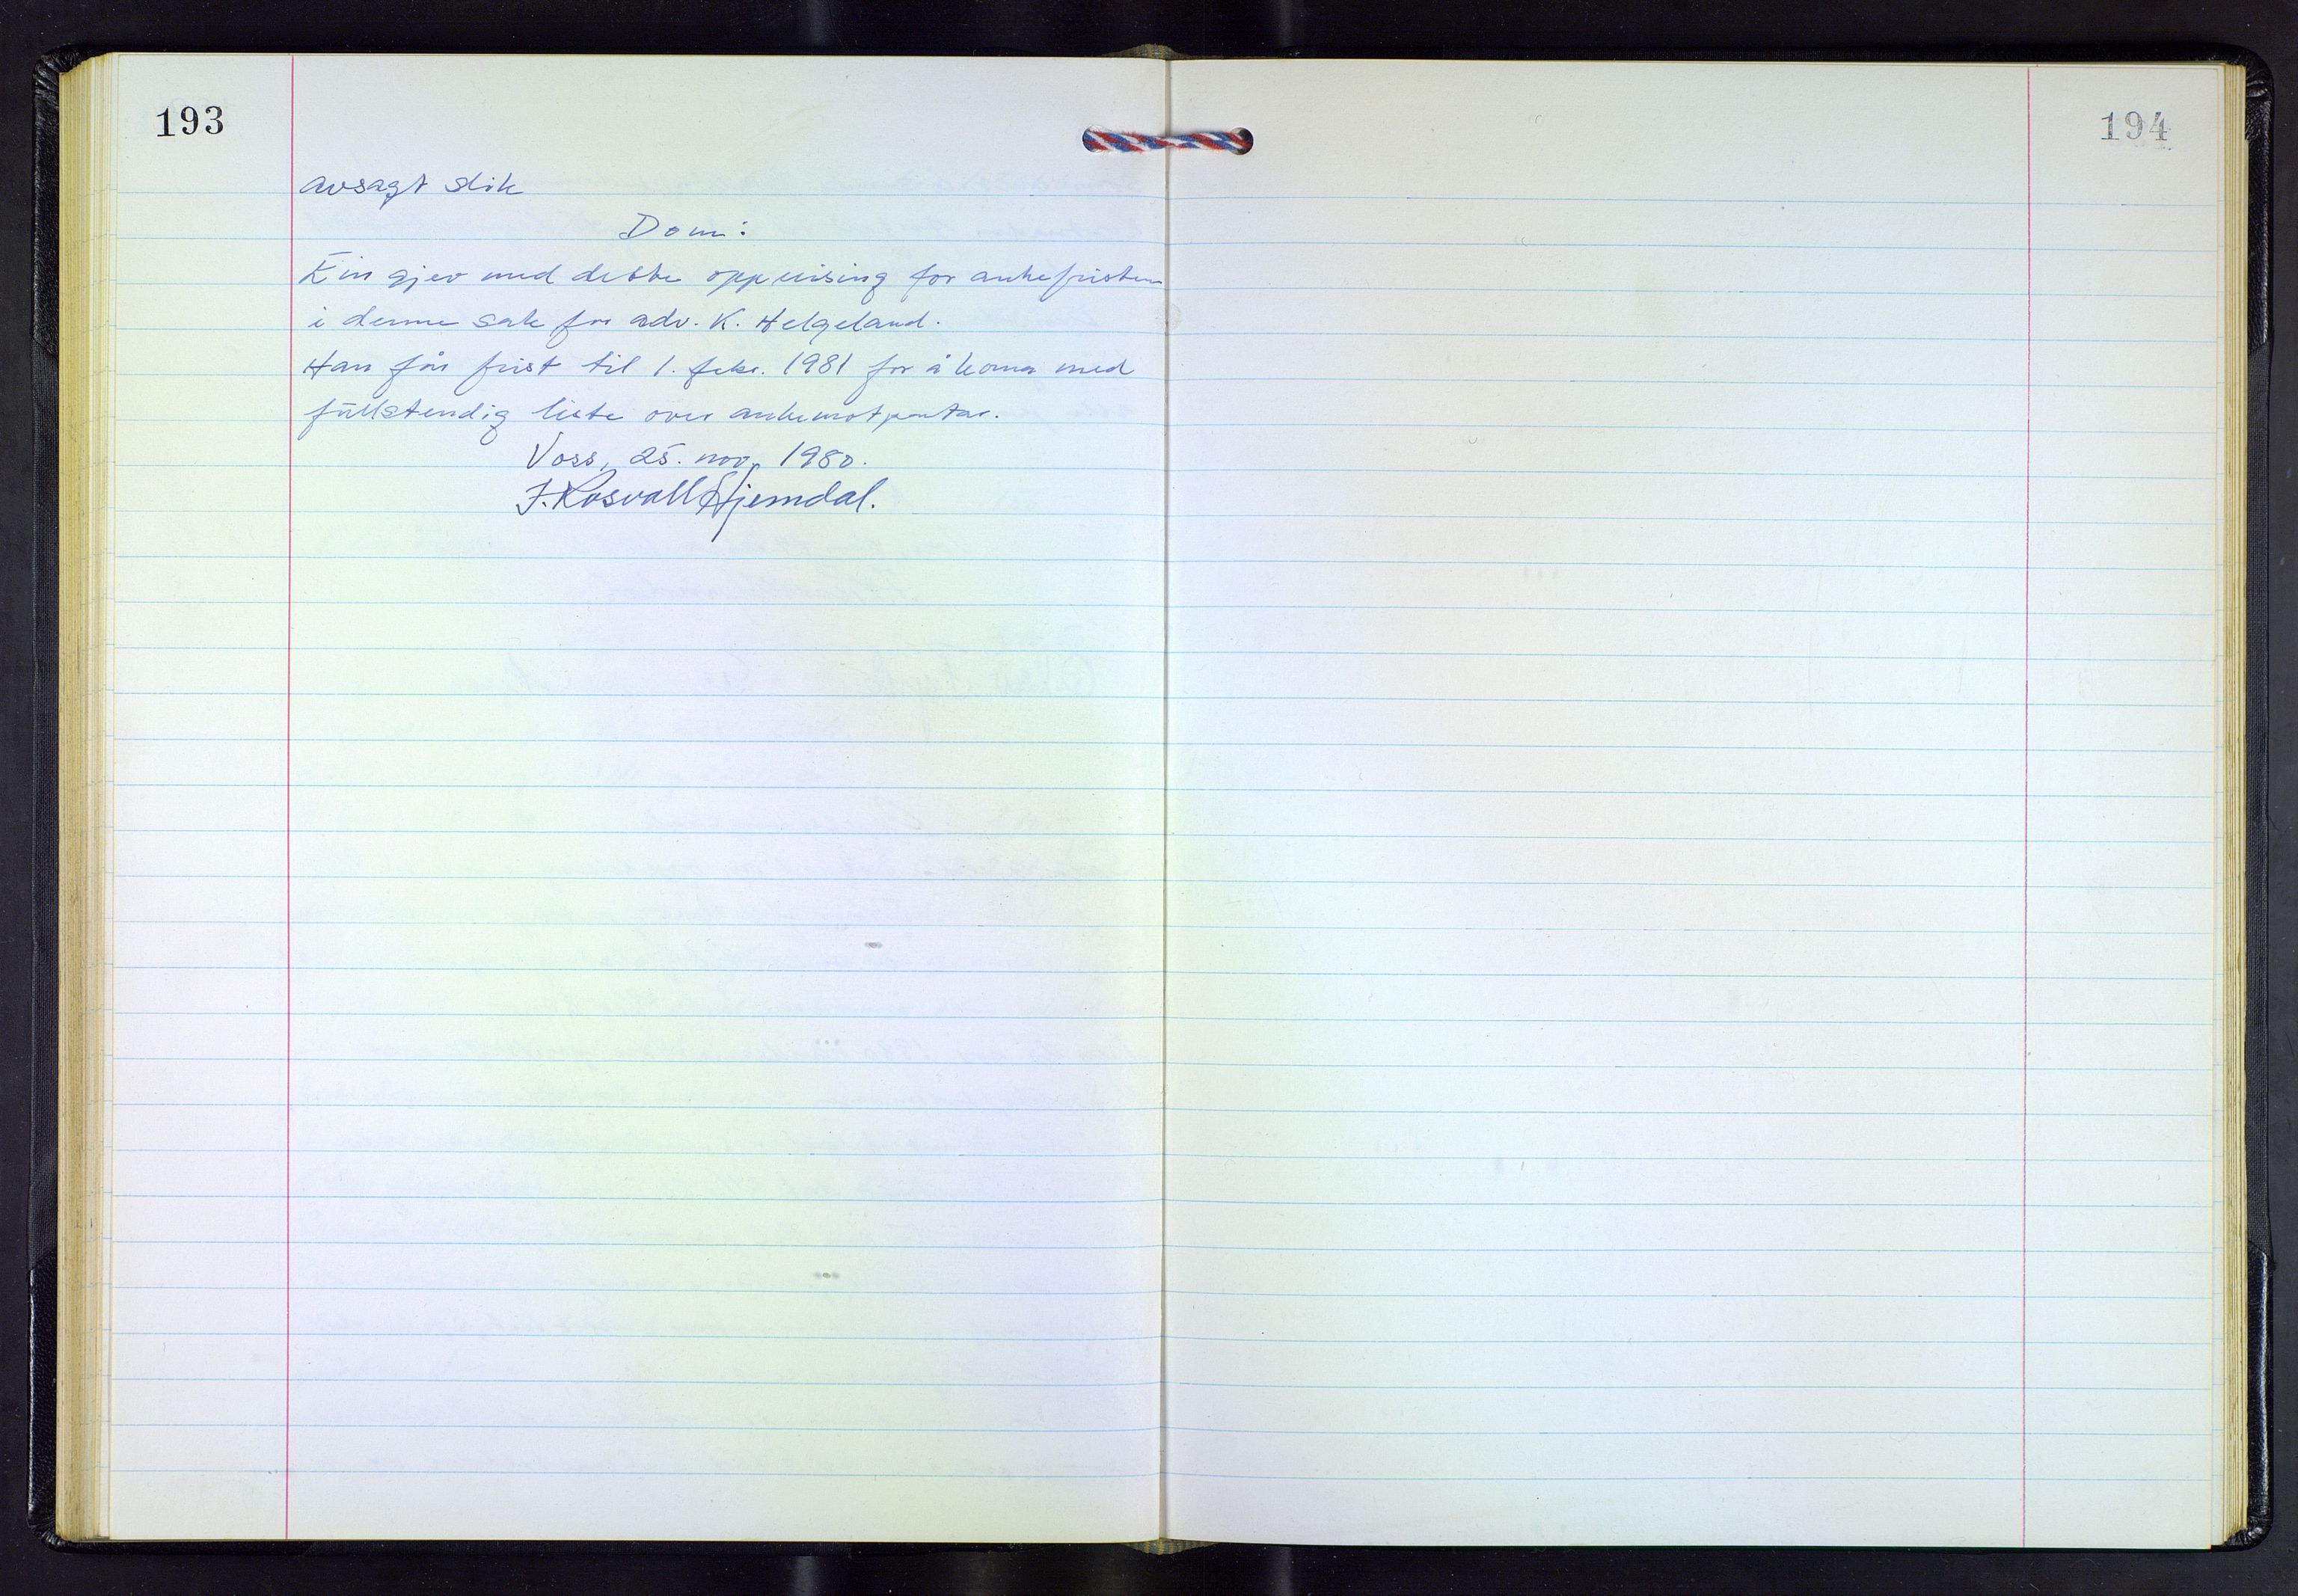 193
194
avsagt slik
Dom:
Ein gjev med dette oppreising for ankefristen
i denne sak for adv. K. Helgeland.
Han får frist til 1. febr. 1981 for å koma med
fullstendig liste over ankemotpartar.
Voss, 25. nov. 1980.
J. Rosvall Hjemdal.